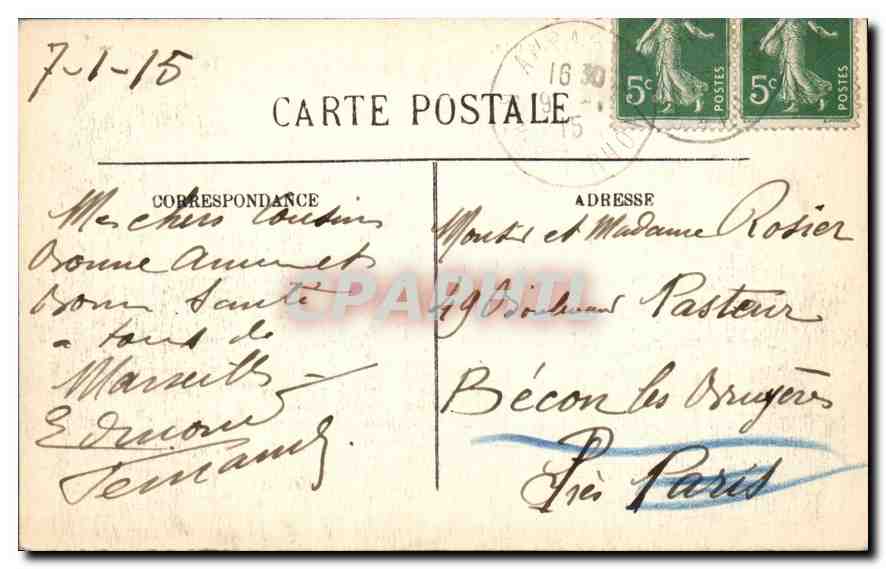 7-1-15
16 30
15
RHONE
5c POSTES
5c POSTES
CARTE POSTALE
CORRESPONDANCE
Mes chers Cousins
Bonne Annee et
Bonne Santé
a tous de
Marseille
Edmond
Fernand
ADRESSE
et Madame Rosier
49 Boulevard Pasteur
Bécon les Bruyères
Près Paris
CPAPHIL